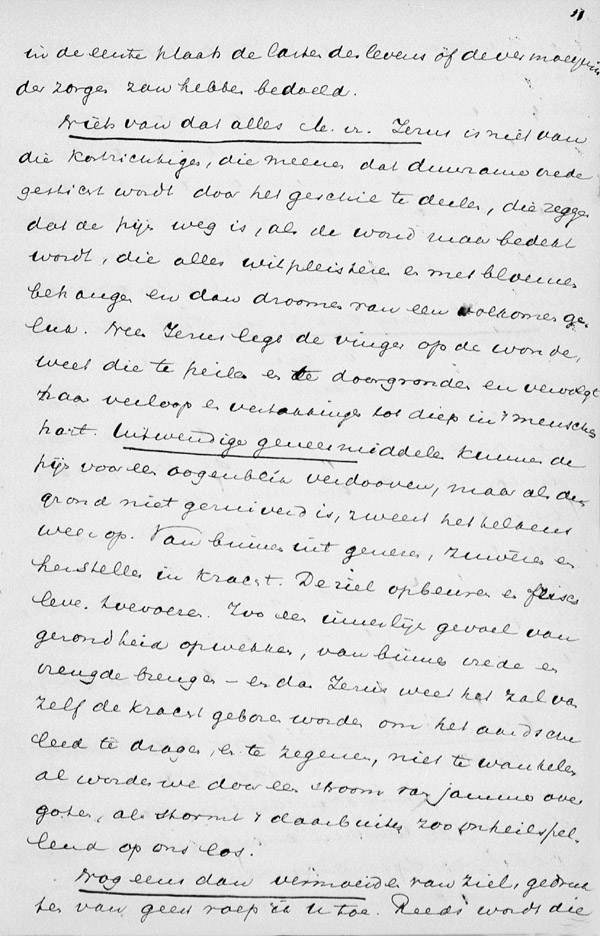 in de eerste plaats de lasten des levens of de vermoeienis
der zorgen zou hebben bedoeld.
Niets van dat alles M. Vr. Jezus is niet van
die kortzichtigen, die meenen dat duurzame vrede
gesticht wordt door het geschil te deelen, die zeggen
dat de pijn weg is, als de wond maar bedekt
wordt, die alles witpleisteren en met bloemen
behangen en dan droomen van een volkomen ge
luk. Neen Jezus legt de vinger op de wonde,
weet die te peilen en te doorgronden en vervolgt
haar verloop en vertakkingen tot diep in 't menschen
hart. Uitwendige geneesmiddelen kunnen de
pijn voor een oogenblik verdooven, maar als de
grond niet gezuiverd is, zweert het telkens
weer op. Van binnen uit genezen, zuiveren en
herstellen in kracht. De ziel opbeuren en frisch
leven toevoeren. Zoo een innerlijk gevoel van
gezondheid opwekken, van binnen vrede en
vreugde brengen – en dan Jezus weet het zal van
zelf de kracht geboren worden om het aardsche
leed te dragen, en te zegenen, niet te wankelen
al worden we door een stroom van jammer over
goten, al stormt 't daarbuiten zoo onheilspel
lend op ons los.
Nog eens dan vermoeiden van ziel, gedruk
ten van geest roep ik U toe. Reeds wordt die